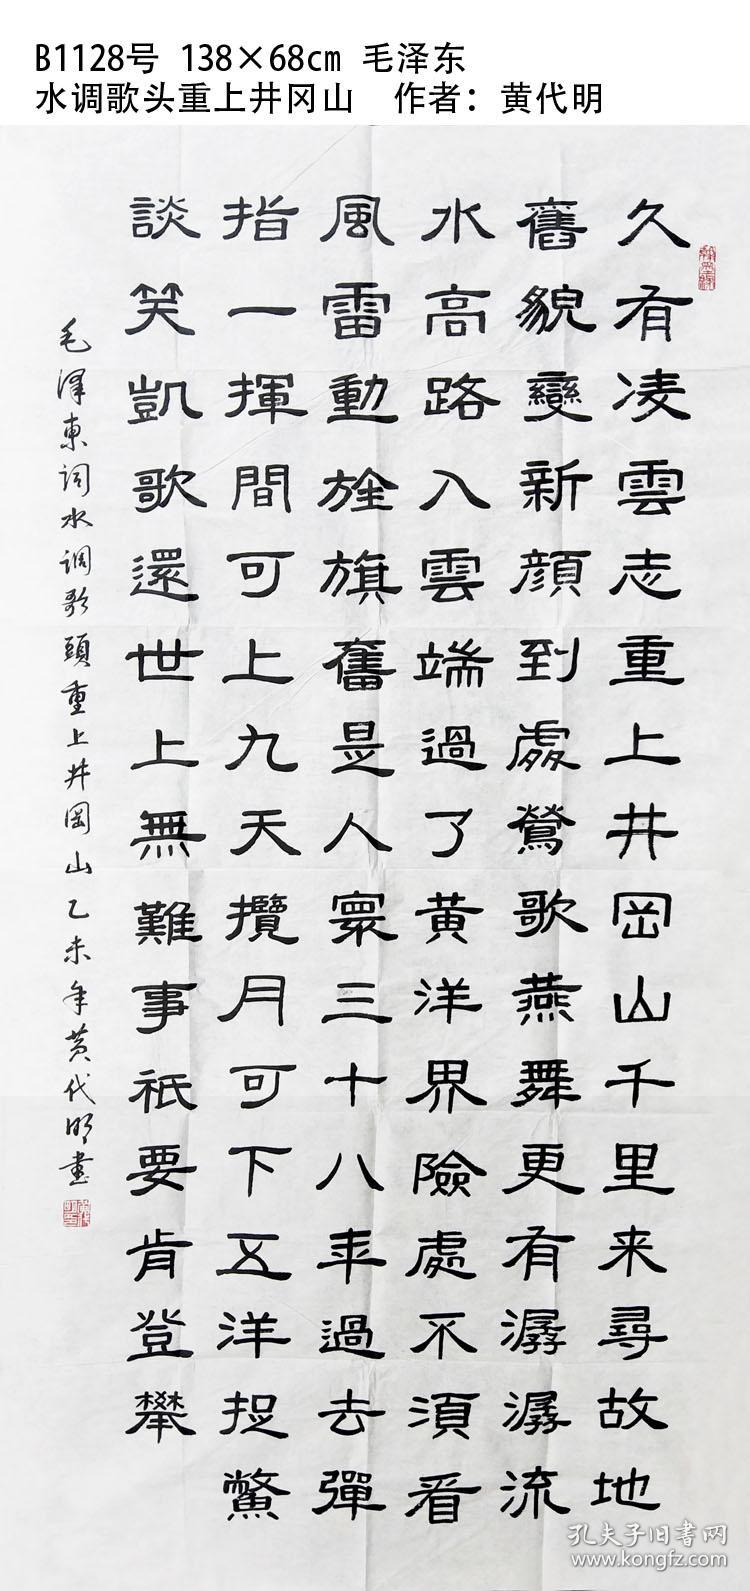 B1128号 138×68cm 毛泽东
水调歌头重上井冈山 作者：黄代明
久有凌雲志重上井岡山千里来尋故地
舊貌變新顔到處鶯歌燕舞更有潺潺流
水高路入雲端過了黄洋界險處不須看
風雷動旌旗奮是人寰三十八年過去彈
指一揮間可上九天攬月可下五洋捉鱉
談笑凱歌還世上無難事祇要肯登攀
毛澤東词水调歌頭重上井岡山乙未年黄代明書
孔夫子旧書网
www.kongfz.com